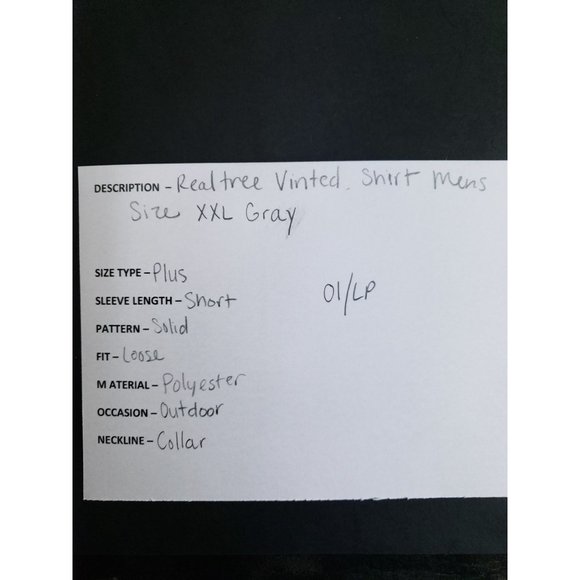 DESCRIPTION - Realtree Vinted. Shirt Mens
Size XXL Gray
SIZE TYPE - Plus
SLEEVE LENGTH - Short
01/LP
PATTERN - Solid
FIT - Loose
MATERIAL - Polyester
OCCASION - Outdoor
NECKLINE - Collar